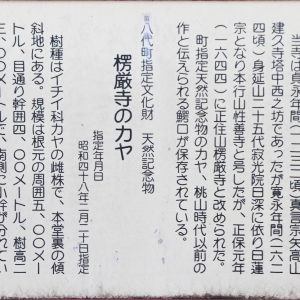 旧八代町指定文化財　天然記念物
楞厳寺のカヤ
指定年月日
昭和四十八年二月二十日指定
樹種はイチイ科カヤの雌株で、本堂裏の傾
斜地にある。規模は根元の周囲五、〇〇メー
トル、目通り幹囲四、〇〇メートル、樹高二
三、〇〇メートルで、南側へ小幹が分れてい
当寺は貞永年間（一二三二頃）真言宗矢高山
建久寺塔中西之坊であったが寛永年間（一六二
四頃）身延山二十五代寂光院日深に依り日蓮
宗となり本行山性善寺と号したが、正保元年
（一六四四）に正住山楞厳寺と改められた。
町指定天然記念物のカヤ、桃山時代以前の
作と伝えられる鰐口が保存されている。